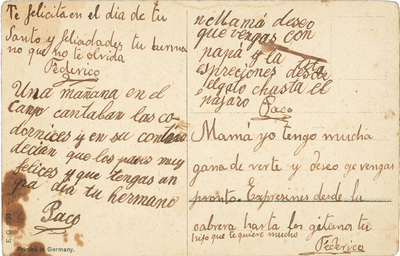 Te felicita en el dia de tu
Santo y felicidades tu
no que no te olvida
Federico
Una mañana en el
canpo cantaban las co-
dornices y en su
decian que los pases muy
felices y que tengas un
dia tu hermano
Paco
Mama deseo
que vengas con
papá y la
espreciones desde
el gato hasta el
pájaro
Paco
Mamá yo tengo mucha
gana de verte y deseo qe vengas
pronto. Expresines desde la
cabrera hasta los gitanos tu
hijo que te quiere mucho
Federico
Printed in Germany.